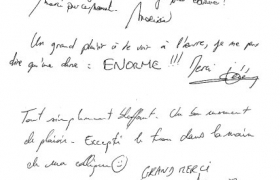 Merci par ce moment
Un grand plaisir à te voir à l'œuvre, je ne peux
dire qu'une chose : ENORME !!! Merci
Tout simplement bluffant. Un bon moment
de plaisir. Excepté le trou dans la main
de mon collègue ☺
GRAND MERCI